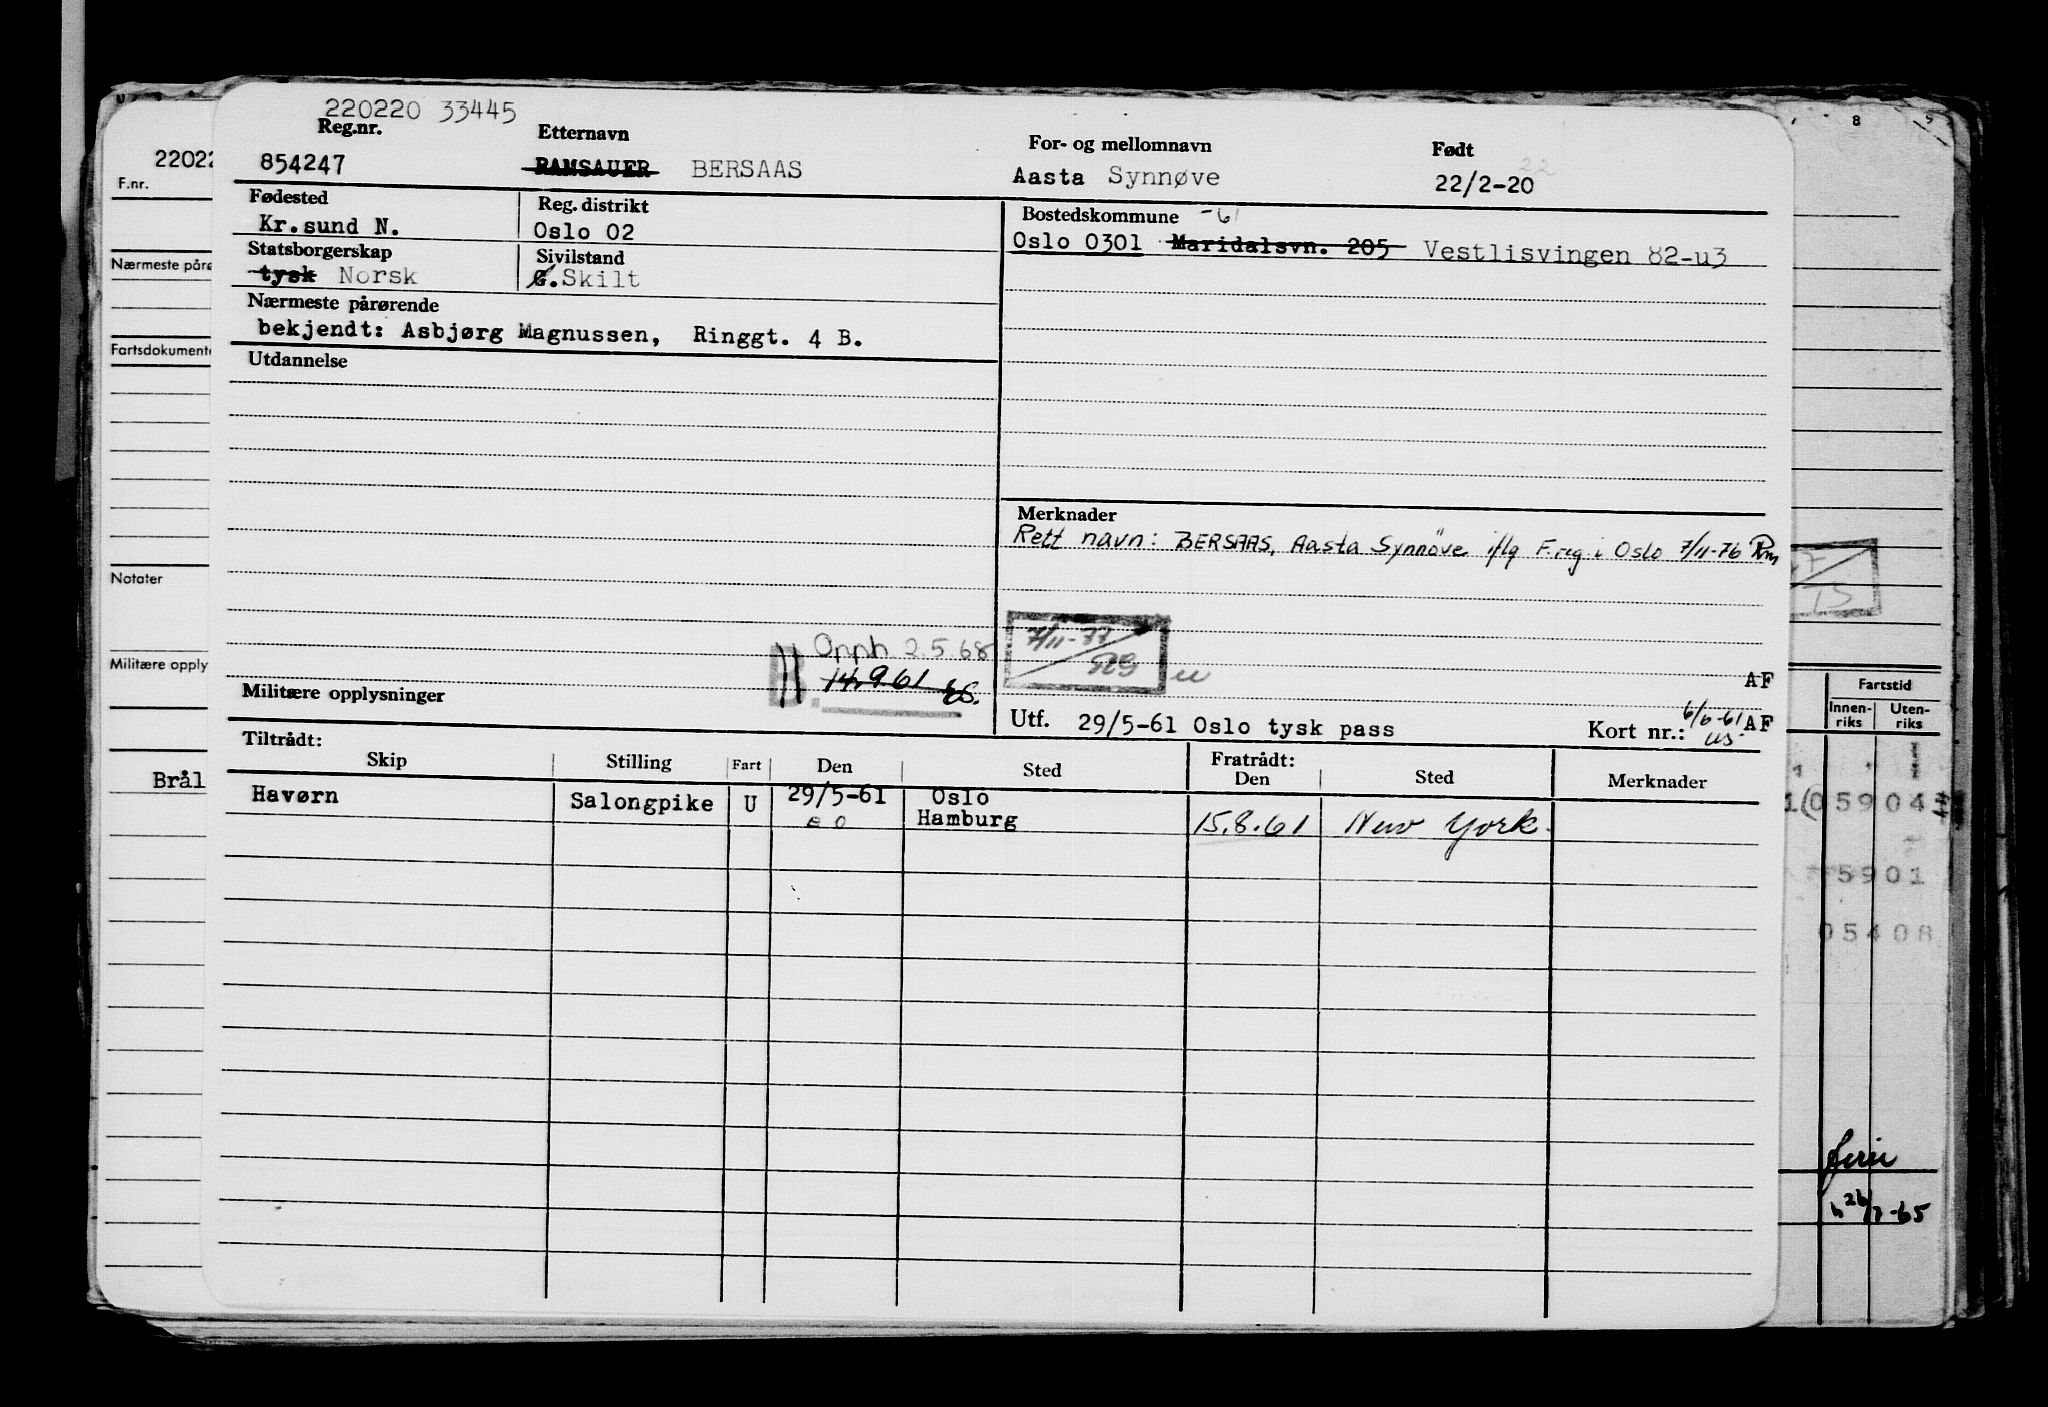 220220 33445
Reg.nr. Etternavn For- og mellomnavn Født
854247 RAMSAUER BERSAAS Aasta Synnøve 22/2-20
Fødested Reg. distrikt Bostedskommune -61
Kr.sund N. Oslo 02 Oslo 0301 Maridalsvn. 205 Vestlisvingen 82-u3
Statsborgerskap Sivilstand
tysk Norsk G. Skilt
Nærmeste pårørende
bekjendt: Asbjørg Magnussen, Ringgt. 4 B.
Utdannelse
Merknader
Rett navn: BERSAAS, Aasta Synnöve iflg F.reg. i Oslo 7/11-76
Opph 2.5.68
B. 14.9.61
7/11-77
529
AF
Militære opplysninger
Utf. 29/5-61 Oslo tysk pass Kort nr.: 6/6-61 AF
Tiltrådt: Fratrådt:
Skip Stilling Fart Den Sted Den Sted Merknader
Havørn Salongpike U 29/5-61 Oslo
Hamburg 15.8.61 New York.
22022
F.nr.
Nærmeste påre
Fartsdokument
Notater
Militære opply
Brål
8
Fartstid
Innen- Uten-
riks riks
05904
5901
05408
ferie
26/7-65